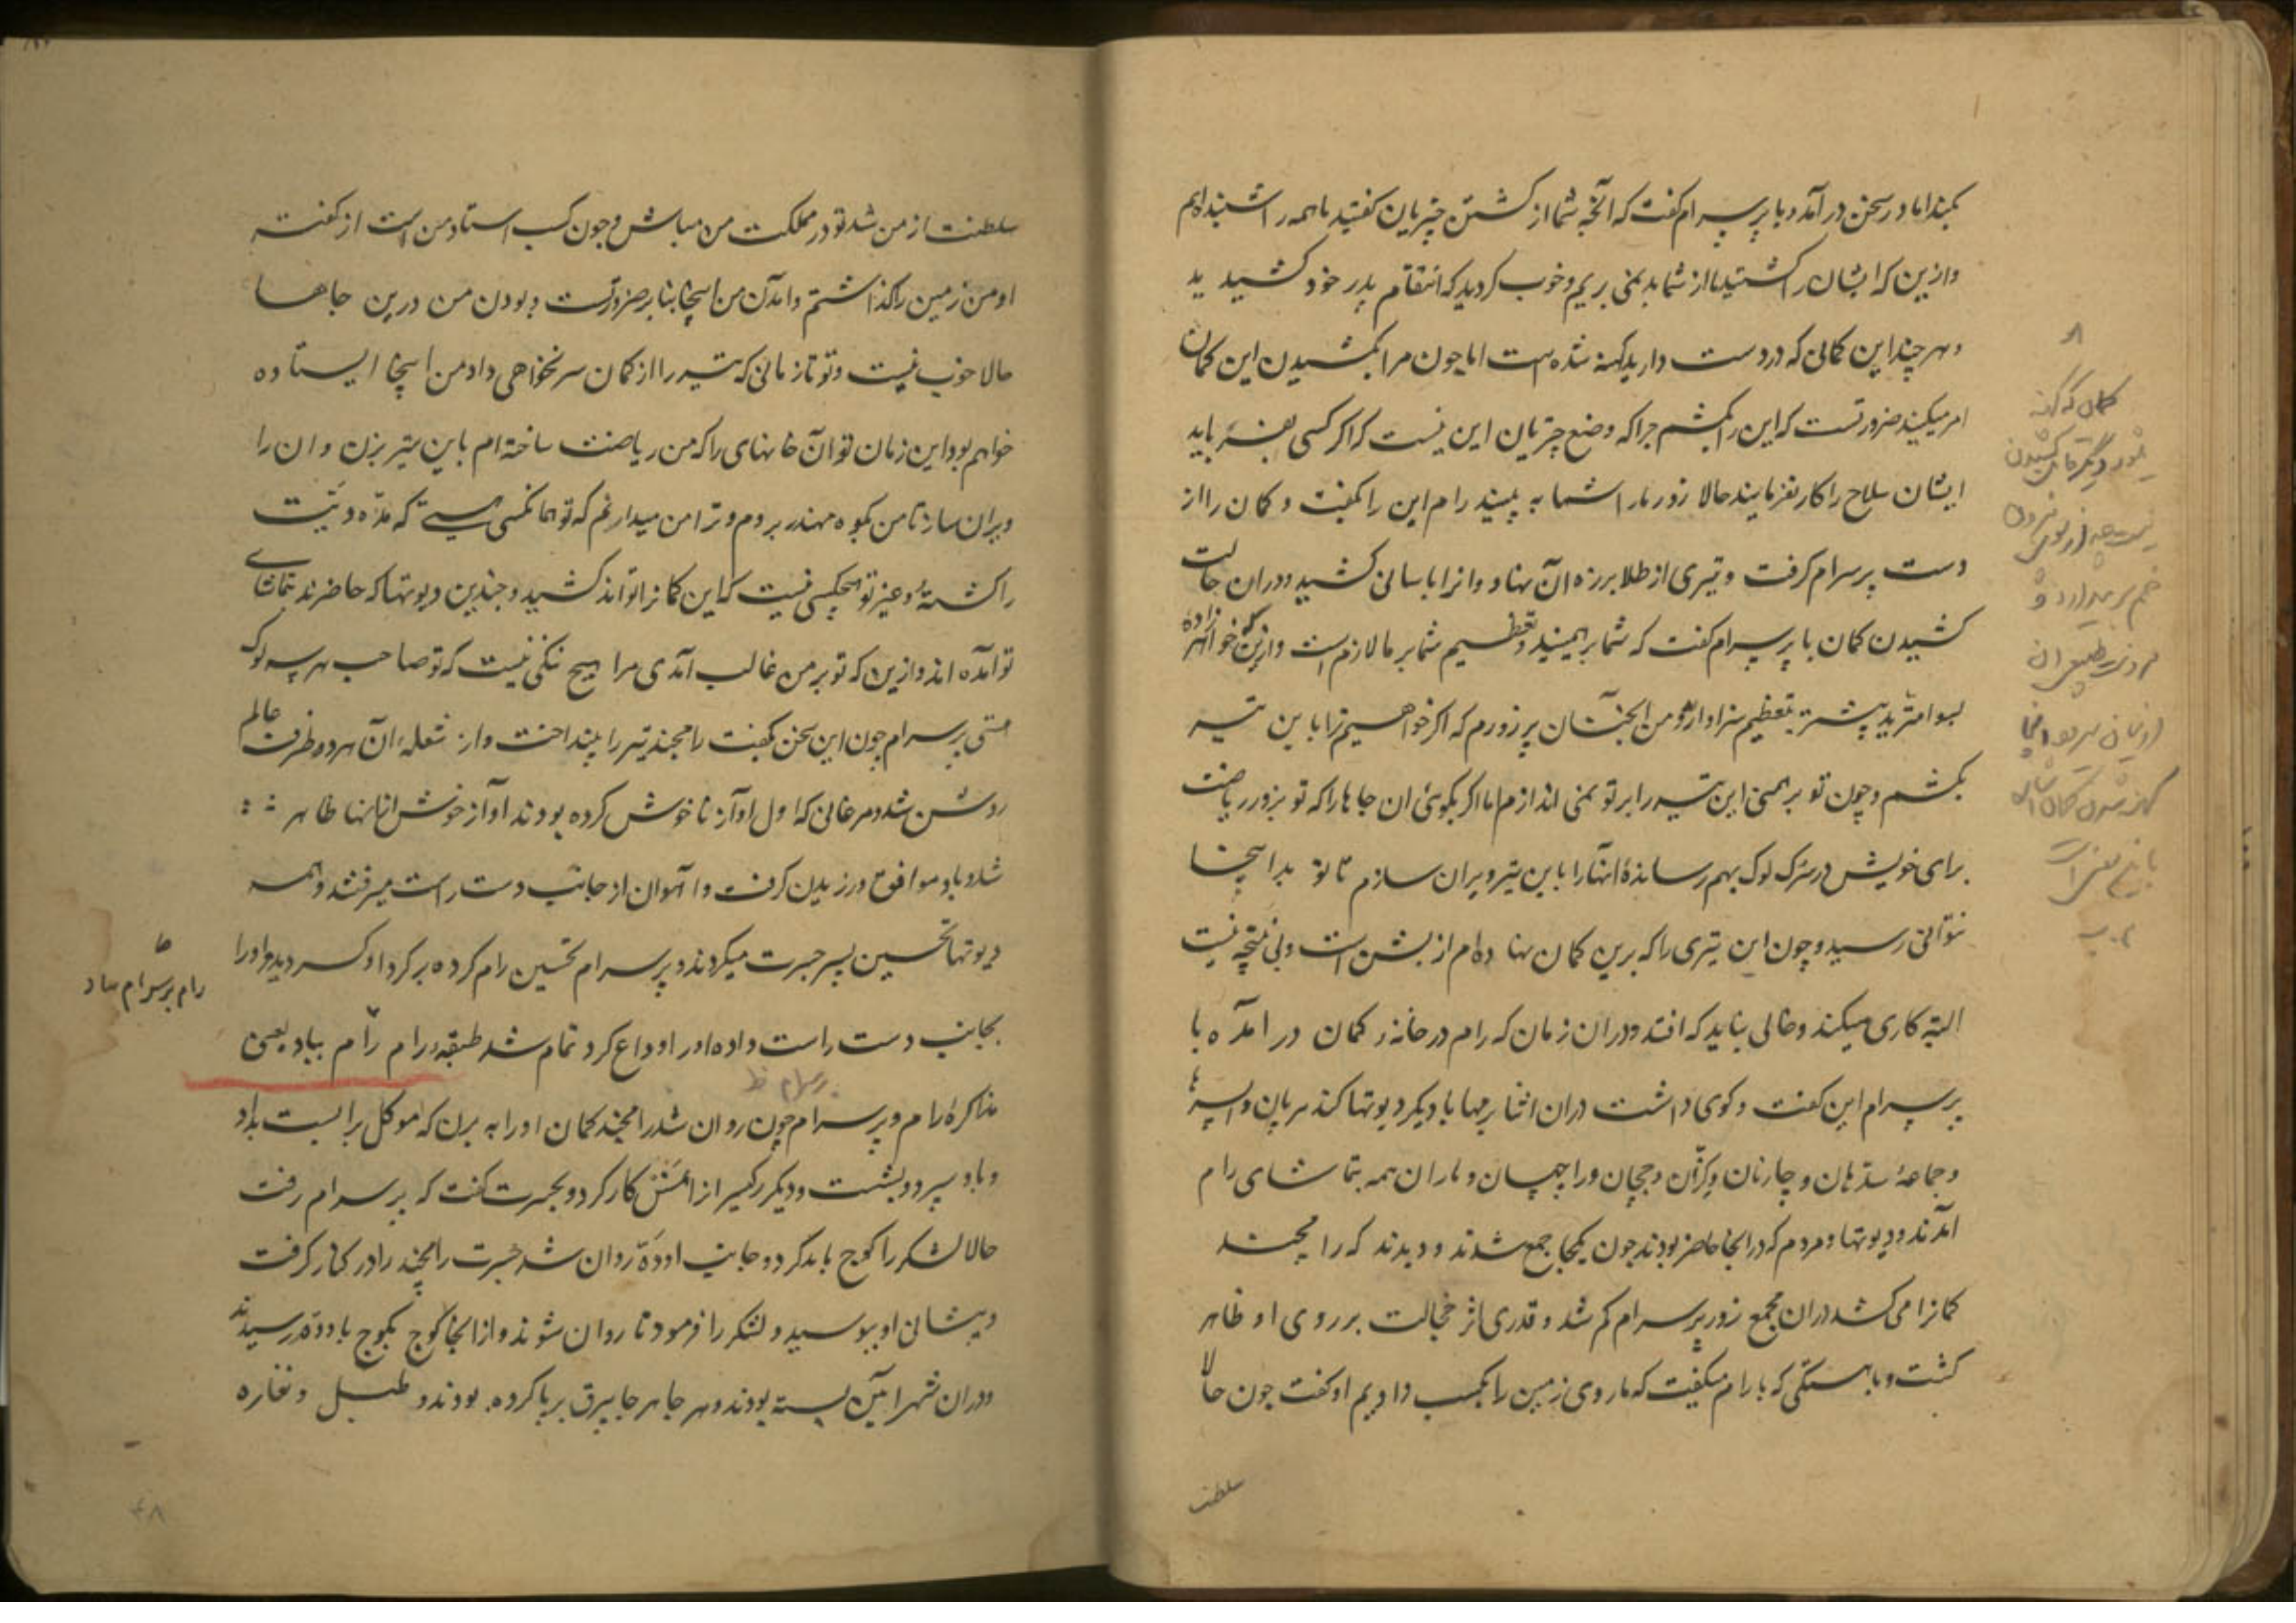 بکند اما در سخن درآمد و با پرسرام گفت که آنچه شما از کشتن چتریان گفتید ما همه را شنیده‌ایم
وازین که ایشان را کشتید ما از شما بد نمی بریم و خوب کردید که انتقام پدر خود کشیدید
و هر چند این کمانی که در دست دارید کهنه شده است اما چون مرا بکشیدن این کمان
امر میکنید ضرورتست که این را بکشم چرا که وضع چتریان این نیست که اگر کسی بفرماید
ایشان سلاح را کار نفرمایند حالا زور مارا شما به بینید رام این را گفت و کمان را از
دست پرسرام گرفت و تیری از طلا بر زه آن نهاد و انرا باسانی کشید و دران حالت
کشیدن کمان با پرسرام گفت که شما برهمنید و تعظیم شما بر ما لازم است وازین که خواهرزاده
بسوامترید پیشتر بتعظیم سزاوارید و من آنچنان پر زورم که اگر خواهم ترا باین تیر
بکشم و چون تو برهمنی این تیر را بر تو نمی اندازم اما اگر بگوئی ان جاها را که تو بزور ریاضت
برای خویش در سرک لوک بهم رسانده‌ٔ انها را باین تیر ویران سازم تا تو بدانجا
نتوانی رسید و چون این تیری را که برین کمان نهاده‌ام از بشن است و بی نتیجه نیست
البته کاری میکند و خالی نباید که افتد و دران زمان که رام در خانه‌ٔ کمان در آمده با
پرسرام این گفت و کوی داشت دران اثنا برمها با دیگر دیوتها کندهربان و اپسرها
و جماعهٔ سدهان و چارنان و کنران و ججان و راچهسان و ماران همه بتماشای رام
آمدند و دیوتها و مردم که درانجا حاضر بودند چون یکجا جمع شدند و دیدند که رامچند
کمانرا می کشد دران مجمع زور پرسرام کم شد و قدری اثر خجالت بر روی او ظاهر
گشت و باهستگی که با رام میگفت که ما روی زمین را بکسب دادیم او گفت چون حالا
سلطنت
سلطنت از من شد تو در مملکت من مباش و چون کسب استاد من است از گفته
او من زمین را گذاشتم و آمدن من اینجا بنا بر ضرورتست و بودن من درین جاها
حالا خوب نیست و تو تا زمانی که تیر را از کمان سر نخواهی داد من اینجا ایستاده
خواهم بود این زمان تو آن خانهای را که من ریاضت ساخته‌ام باین تیر بزن و ان را
ویران ساز تا من بکوه مهندر بروم و ترا من میدانم که تو همانکسی هستی که مده دیت
را کشتهٔ و غیر تو هیچکسی نیست که این کمانرا تواند کشید و چندین دیوتها که حاضرند تماشای
تو آمده اند وازین که تو بر من غالب آمدی مرا هیچ ننگی نیست که تو صاحب هر سه لوک
هستی پرسرام چون این سخن گفت رامچند تیر را بینداخت و از شعلهٔ آن هر ده طرف عالم
روشن شد و مرغانی که اول آواز ناخوش کرده بودند آواز خوش ازانها ظاهر
شد و باد موافق ورزیدن گرفت و آهوان از جانب دست راست میرفتند و همه
دیوتها تحسین پسر جسرت میکردند و پرسرام تحسین رام کرده بر گرد او گردید و او را
بجانب دست راست داده او را وداع کرد تمام شد طبقه رام رام بباد یعنی
رام پرسرام بباد
مذاکرهٔ رام و پرسرام چون روان شد رامچند کمان او را به برن که موکل براب است بداد
پرسرام ظ
و باو سپرد و بشست و دیگر رکهیسر از اتش کار کرد و بجسرت گفت که پرسرام رفت
حالا لشکر را کوچ باید کرد و جانب اودة روان شد جسرت رامچند را در کنار گرفت
و پیشانی او ببوسید و لشکر را فرمود تا روان شوند و ازانجا کوچ بکوچ باودة رسیدند
و دران شهر آئین بسته بودند و هر جا هر جا بیرق برپا کرده بودند و طبل و نقاره
۴۸